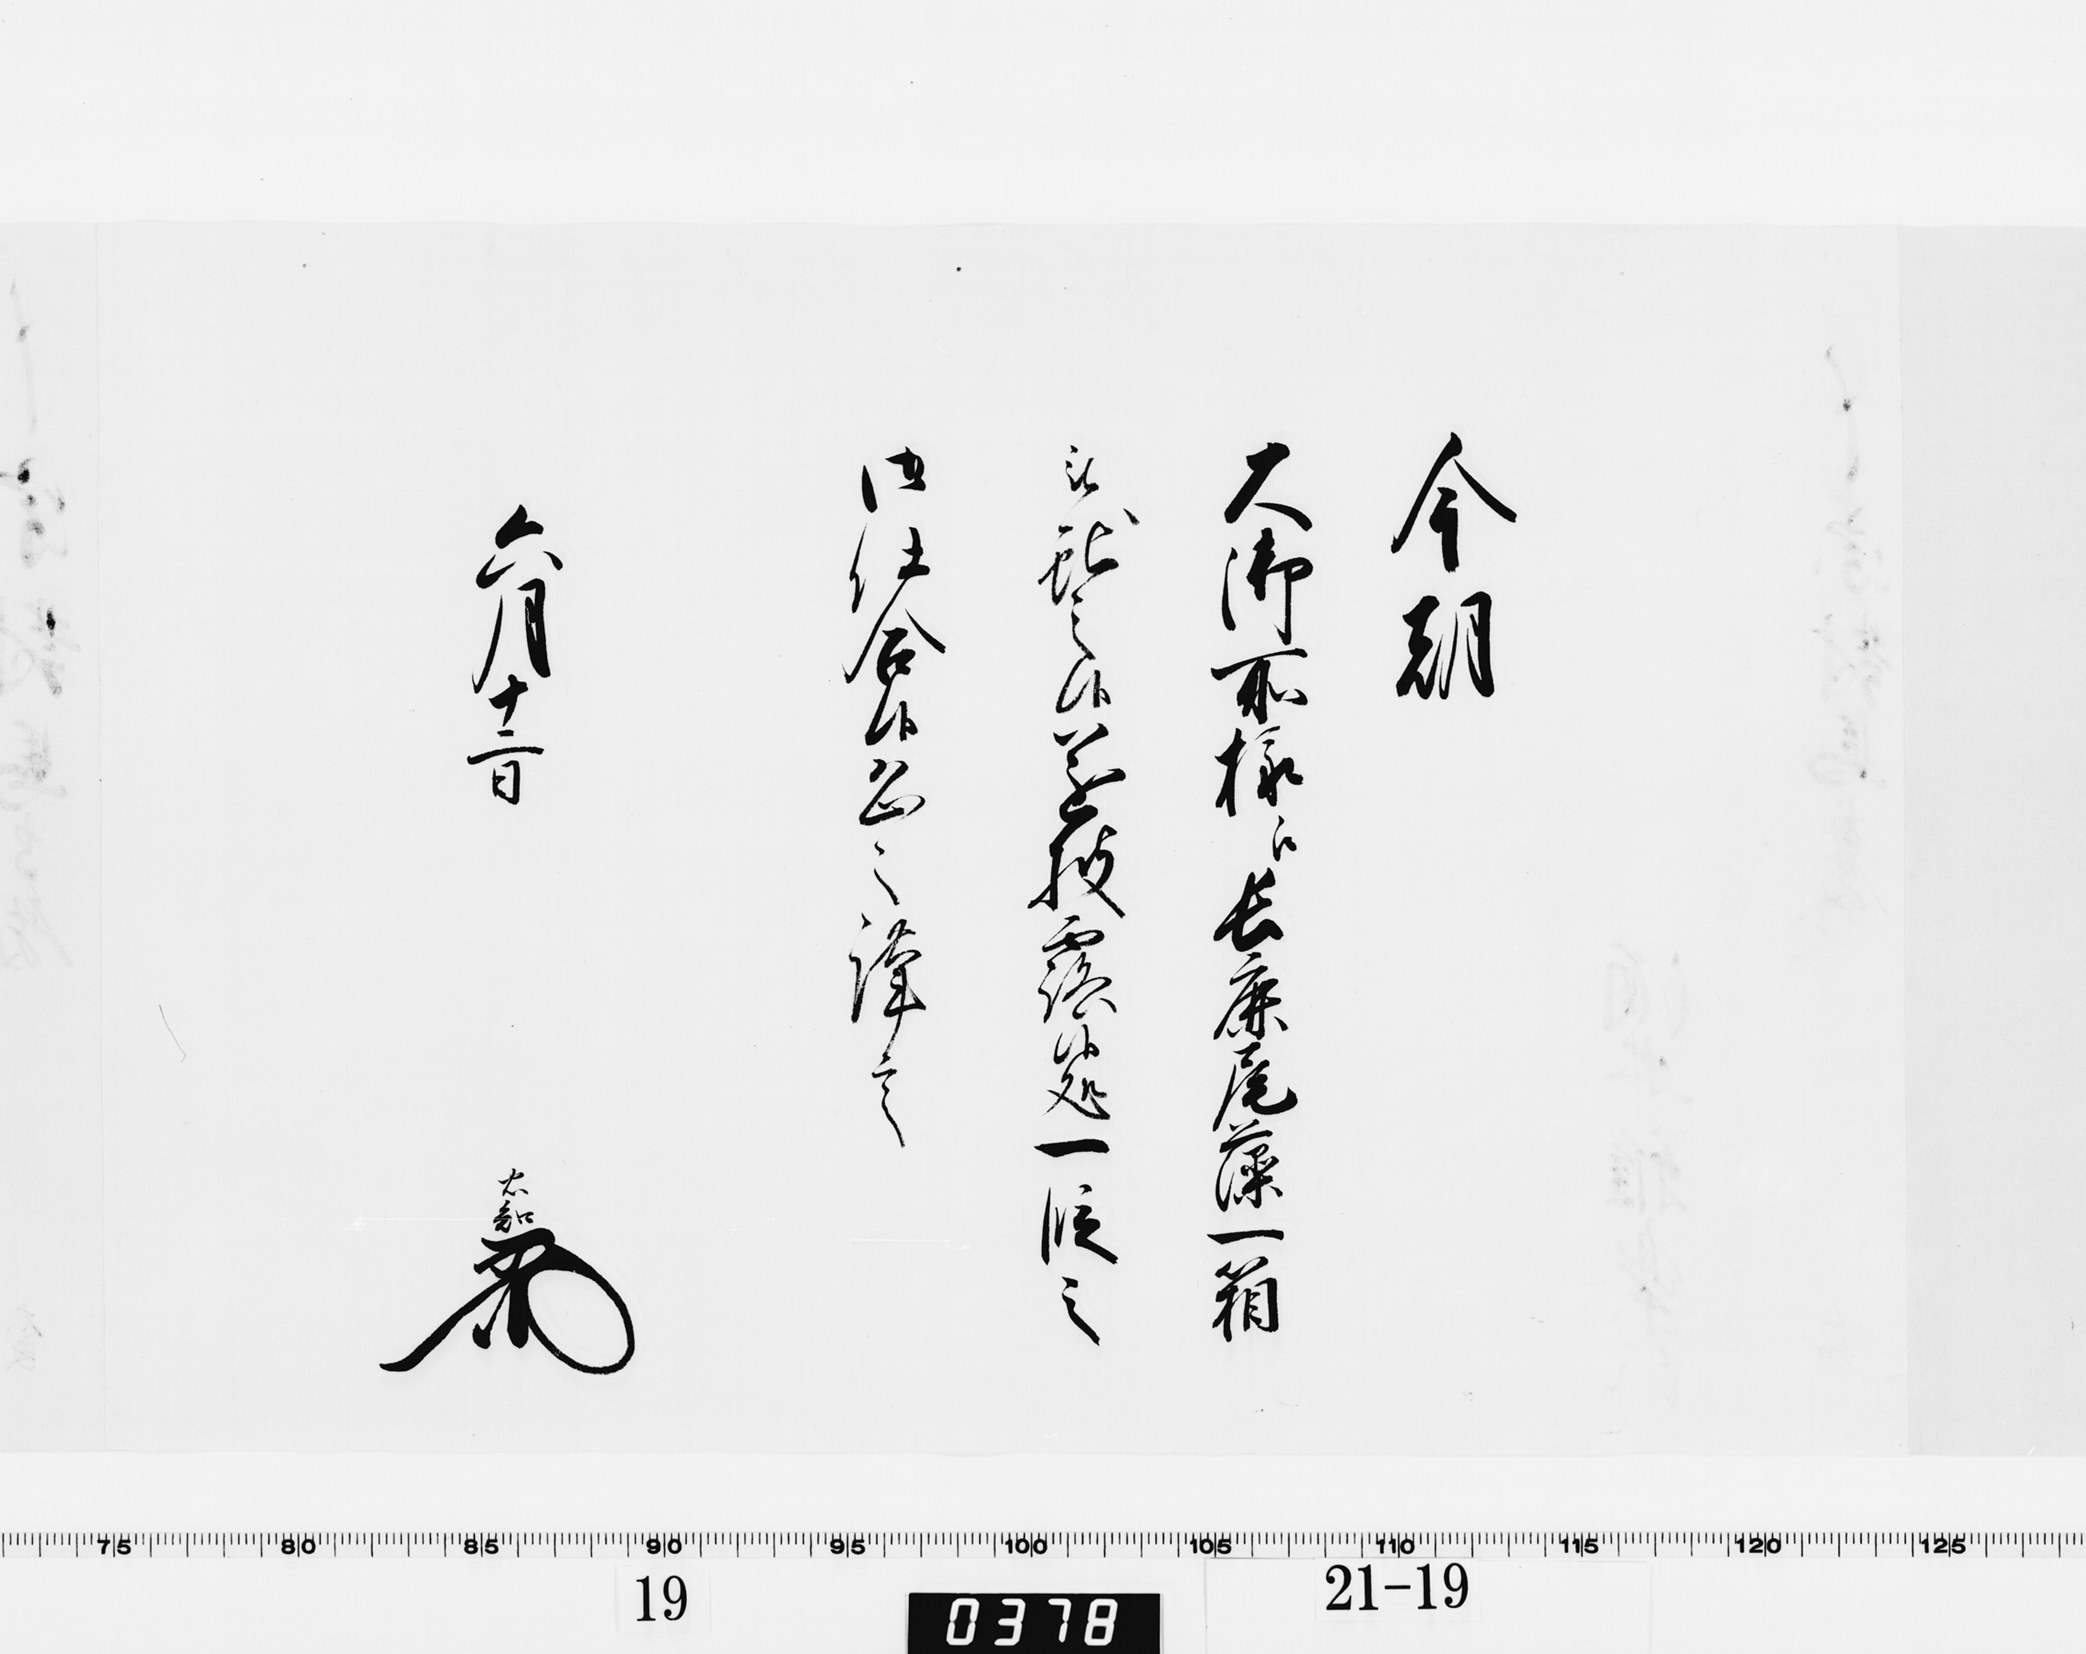 今朝
大御所様江長鹿尾藻一箱
被献之候遂披露候処一段之
御仕合候恐々謹言
六月十二日
75 80 85 90 95 100 105 110 115 120 125
19
0378
21-19